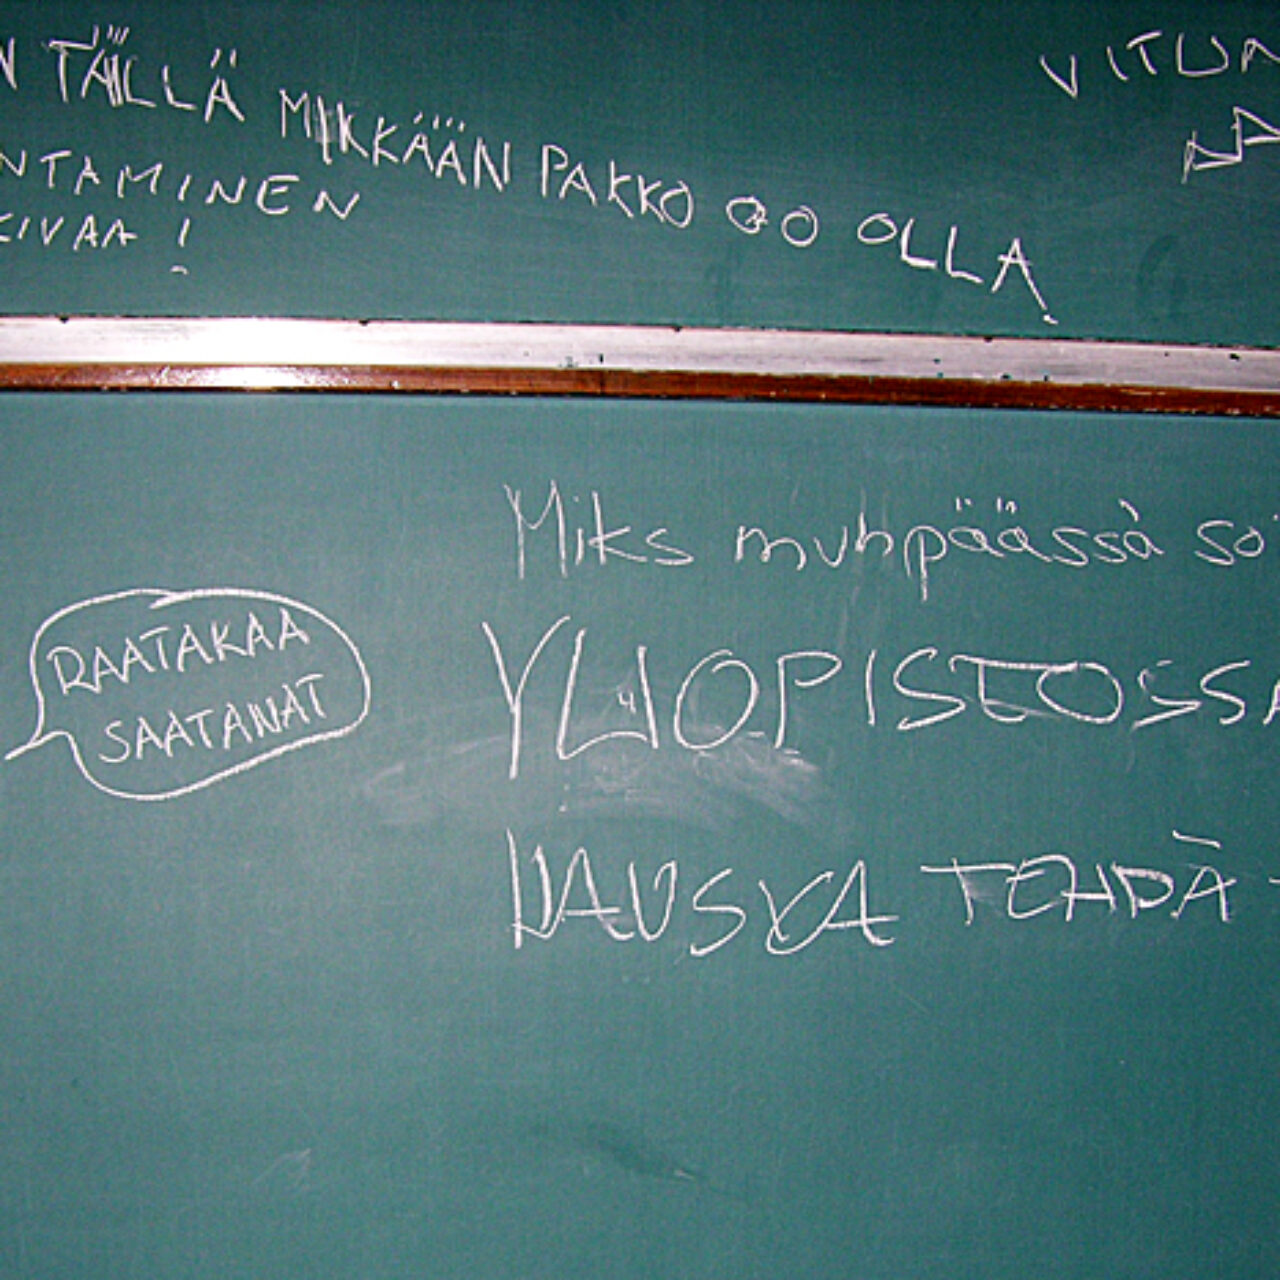 N TÄLLÄ MIKKÄÄN PAKKO OO OLLA
NTAMINEN
KIVAA!
VITUN
Miks muhpäässä so
RAATAKAA
SAATANAT
YLIOPISTOSSA
HAUSKA TEHDÄ